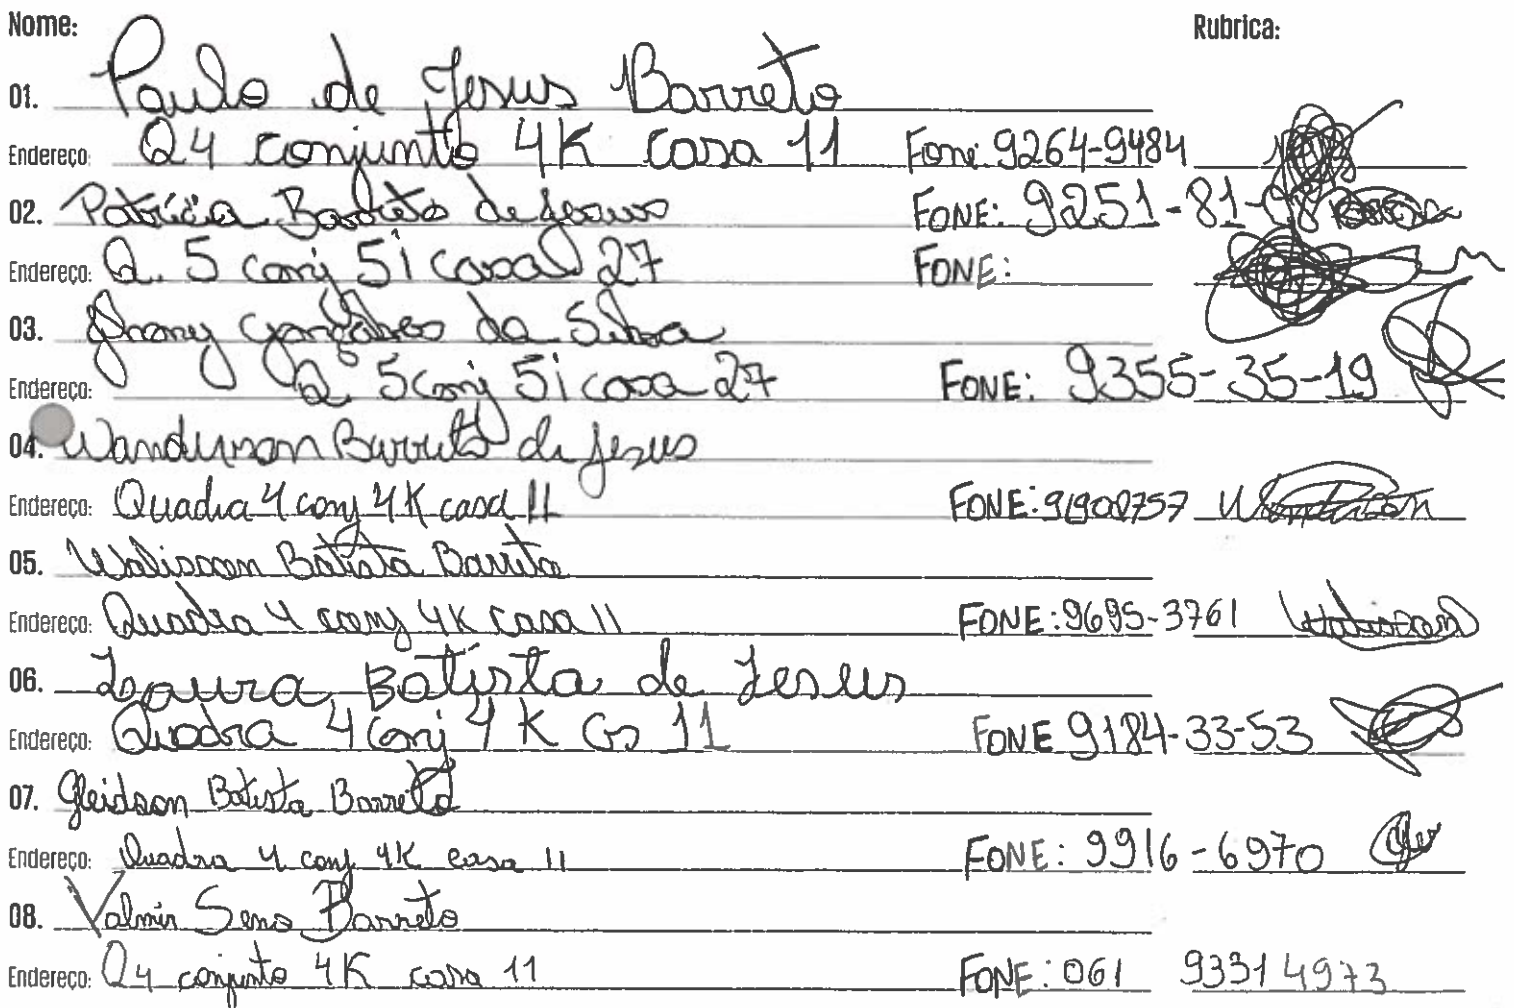 Nome: Rubrica:
01. Paulo de Jesus Barreto
Endereço: Q4 conjunto 4K casa 11 Fone: 9264-9484
02. Patrícia Barreto de Jesus FONE: 9251-81-98
Endereço: Q. 5 conj 5i casa 27 FONE:
03. Jhony Gonçalves da Silva
Endereço: Q. 5 conj 5i casa 27 FONE: 9355-35-19
04. Wanderson Barreto de Jesus
Endereço: Quadra 4 conj 4K casa 11 FONE: 91900757 Wanderson
05. Walisson Batista Barreto
Endereço: Quadra 4 conj 4K casa 11 FONE: 9695-3761 Walisson
06. Laura Batista de Jesus
Endereço: Quadra 4 conj 4K Cs 11 FONE 9184-33-53
07. Gleidson Batista Barreto
Endereço: Quadra 4 conj 4K casa 11 FONE: 9916-6970
08. Valmir Sena Barreto
Endereço: Q4 conjunto 4K casa 11 FONE: 061 93314973